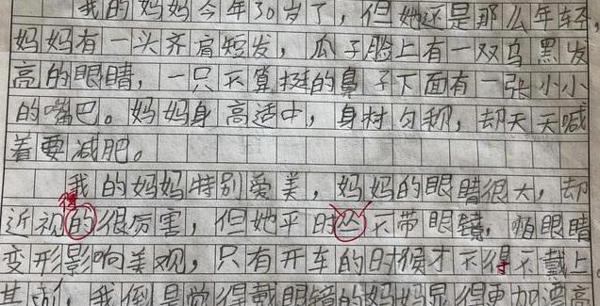 我的妈妈今年30岁了，但她还是那么年轻，
妈妈有一头齐肩短发，瓜子脸上有一双乌黑发
高的眼睛，一只不算挺的鼻子下面有一张小小
的嘴巴。妈妈身高适中，身材匀称，却天天喊
着要减肥。
我的妈妈特别爱美，妈妈的眼睛很大，却
得
近视的很厉害，但她平时丛不带眼镜，怕眼睛
变形影响美观，只有开车的时候才不得不戴上
其实，我倒是觉得戴眼镜的妈妈显得更加漂高